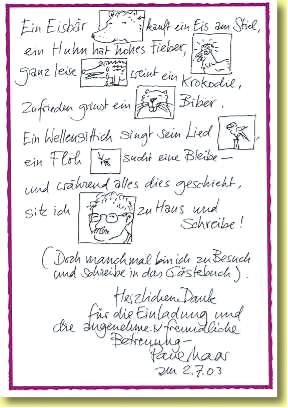 Ein Eisbär kauft ein Eis am Stiel,
ein Huhn hat hohes Fieber,
ganz leise weint ein Krokodil,
Zufrieden grinst ein Biber.
Ein Wellensittich singt sein Lied
ein Floh sucht eine Bleibe –
und während alles dies geschieht,
sitz ich zu Haus und
Schreibe!
(Doch manchmal bin ich zu Besuch
und schreibe in das Gästebuch).
Herzlichen Dank
für die Einladung und
die angenehme, freundliche
Betreuung –
Paul Maar
am 2.7.03